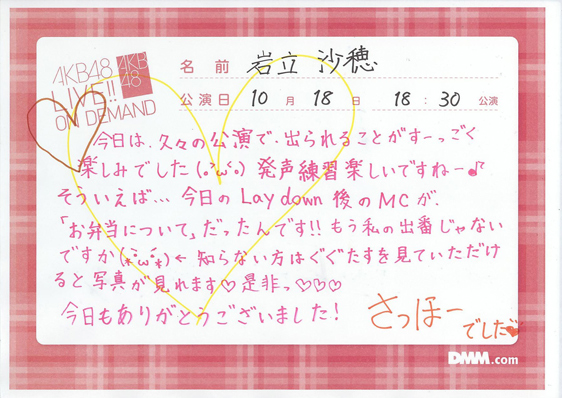 AKB48
LIVE!!
ON DEMAND
AKB
48
名前 岩立 沙穂
公演日 10月 18日 18:30 公演
今日は、久々の公演で、出られることがすーっごく
楽しみでした(｡･ω･｡) 発声練習楽しいですねー♪
そういえば… 今日の Lay down 後の MC が、
「お弁当について」だったんです!! もう私の出番じゃない
ですか(*･ω･*)← 知らない方はぐぐたすを見ていただけ
ると写真が見れます♡ 是非っ♡♡♡
今日もありがとうございました!
さっほー
でした♥
DMM.com